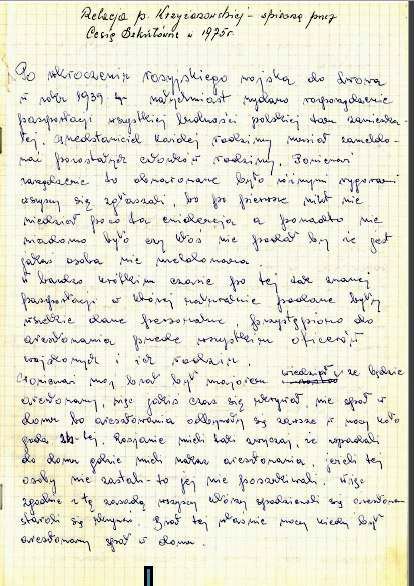 Relacja p. Krzyczkowskiej - spisana przez
Cesię Szkutównę w 1975 r.
Po wkroczeniu rosyjskiego wojska do Lwowa
w roku 1939 r. natychmiast wydano rozporządzenie
paszportacji wszystkiej ludności polskiej tam zamieszka-
łej. Przedstawiciel każdej rodziny musiał zameldo-
wać pozostałych członków rodziny. Ponieważ
zarządzenie to obwarowane było różnymi rygorami
wszyscy się zgłaszali, bo po pierwsze nikt nie
wiedział po co ta ewidencja a ponadto nie
wiadomo było czy ktoś nie podał by że jest
jakaś osoba nie meldowana
W bardzo krótkim czasie po tej tak zwanej
paszportacji w której naturalnie podane były
wszelkie dane personalne przystąpiono do
aresztowania przede wszystkim oficerów
wojskowych i ich rodzin.
Ponieważ mój brat był majorem wiedział że będzie
aresztowany, więc jakiś czas się ukrywał nie spał w
domu bo aresztowania odbywały się zawsze w nocy koło
godz. 2-tej. Rosjanie mieli taki zwyczaj, że wpadali
do domu gdzie mieli nakaz aresztowania, jeżeli tej
osoby nie zastali - to jej nie poszukiwali. Więc
zgodnie z tą zasadą wszyscy którzy spodziewali się aresztowań
starali się ukrywać. Brat tej właśnie nocy kiedy był
aresztowany spał w domu.